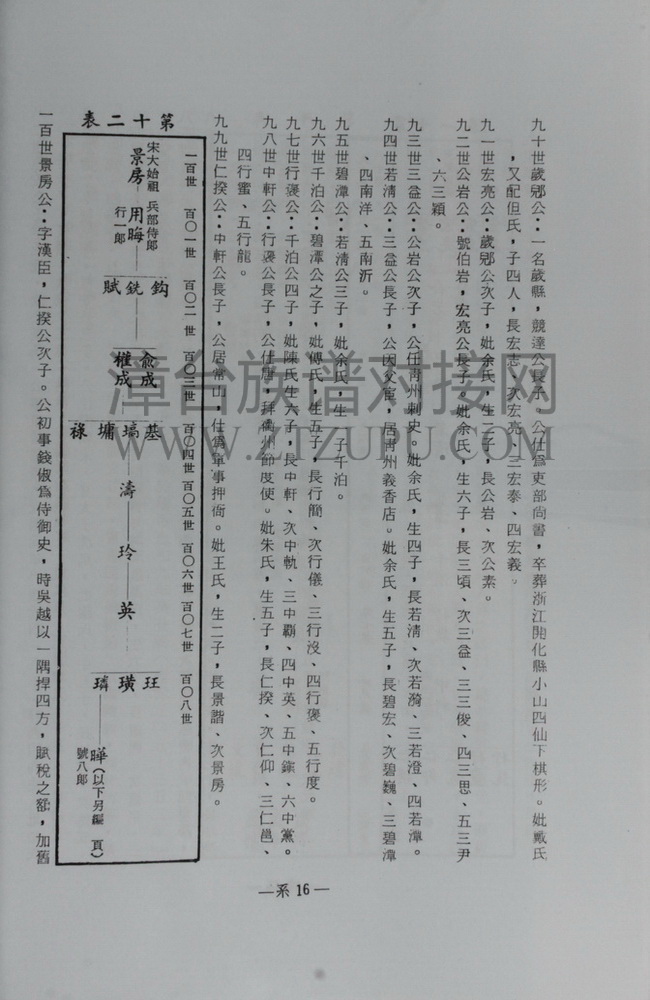 九十世歲郢公：一名歲縣，競達公長子，公仕為吏部尚書，卒葬浙江開化縣小山四仙下棋形。妣戴氏
，又配但氏，子四人，長宏志、次宏亮、三宏泰、四宏義。
九一世宏亮公：歲郢公次子，妣余氏，生二子，長公岩、次公素。
九二世公岩公：號伯岩，宏亮公長子，妣余氏，生六子，長三頃、次三益、三三俊、四三思、五三尹
、六三穎。
九三世三益公：公岩公次子，公任青州刺史。妣余氏，生四子，長若清、次若漪、三若澄、四若潭。
九四世若清公：三益公長子，公因父宦，居青州義香店。妣余氏，生五子，長碧宏、次碧巍、三碧潭
、四南洋、五南沂。
九五世碧潭公：若清公三子，妣余氏，生一子千泊。
九六世千泊公：碧潭公之子，妣傅氏，生五子，長行簡、次行儀、三行沒、四行褒、五行度。
九七世行褒公：千泊公四子，妣陳氏生六子，長中軒、次中軌、三中覇、四中英、五中鏞、六中黨。
九八世中軒公：行褒公長子，公仕唐，拜衢州節度使。妣朱氏，生五子，長仁揆、次仁仰、三仁邕、
四行蜜、五行龍。
九九世仁揆公：中軒公長子，公居常山，仕為軍事押衙。妣王氏，生二子，長景諧、次景房。
第十二表
一百世 百〇一世 百〇二世 百〇三世 百〇四世 百〇五世 百〇六世 百〇七世 百〇八世
宋大始祖 景房
兵部侍郎 用晦 行一郎
鈞 銑 賦
俞成 權成
基 塙 墉 祿
濤
玲
英
玨 璜 璘
曄 號八郎
（以下另編 頁）
一百世景房公：字漢臣，仁揆公次子。公初事錢俶為侍御史，時吳越以一隅捍四方，賦稅之額，加舊
—系 16—
漳台族谱对接网
WWW.ZTZUPU.COM